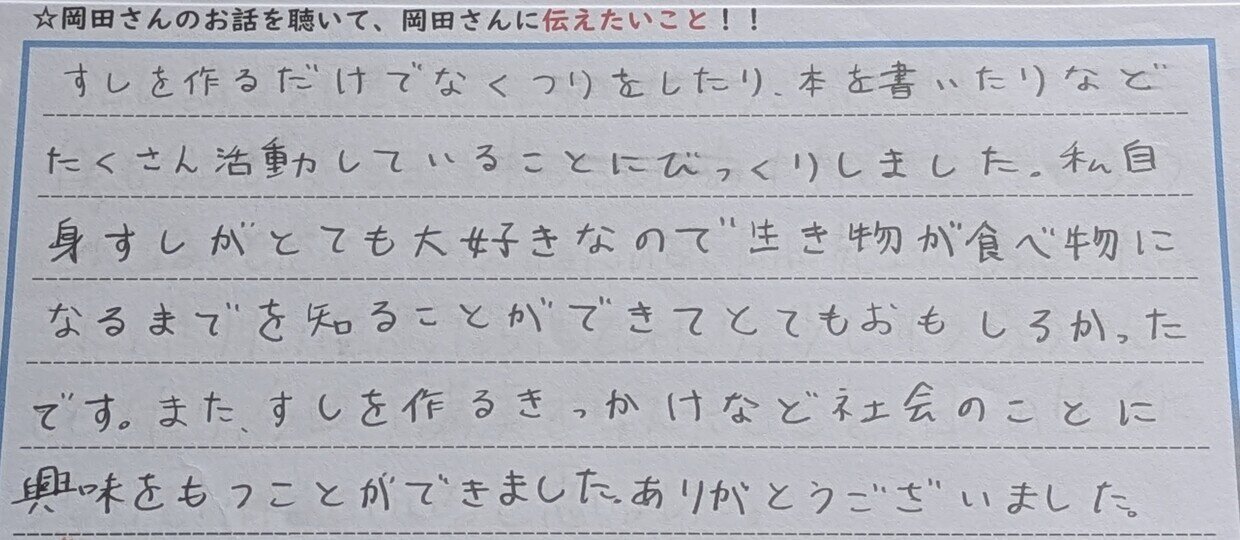 ☆岡田さんのお話を聴いて、岡田さんに伝えたいこと！！
すしを作るだけでなくつりをしたり、本を書いたりなど
たくさん活動していることにびっくりしました。私自
身すしがとても大好きなので生き物が食べ物に
なるまでを知ることができてとてもおもしろかった
です。また、すしを作るきっかけなど社会のことに
興味をもつことができました。ありがとうございました。